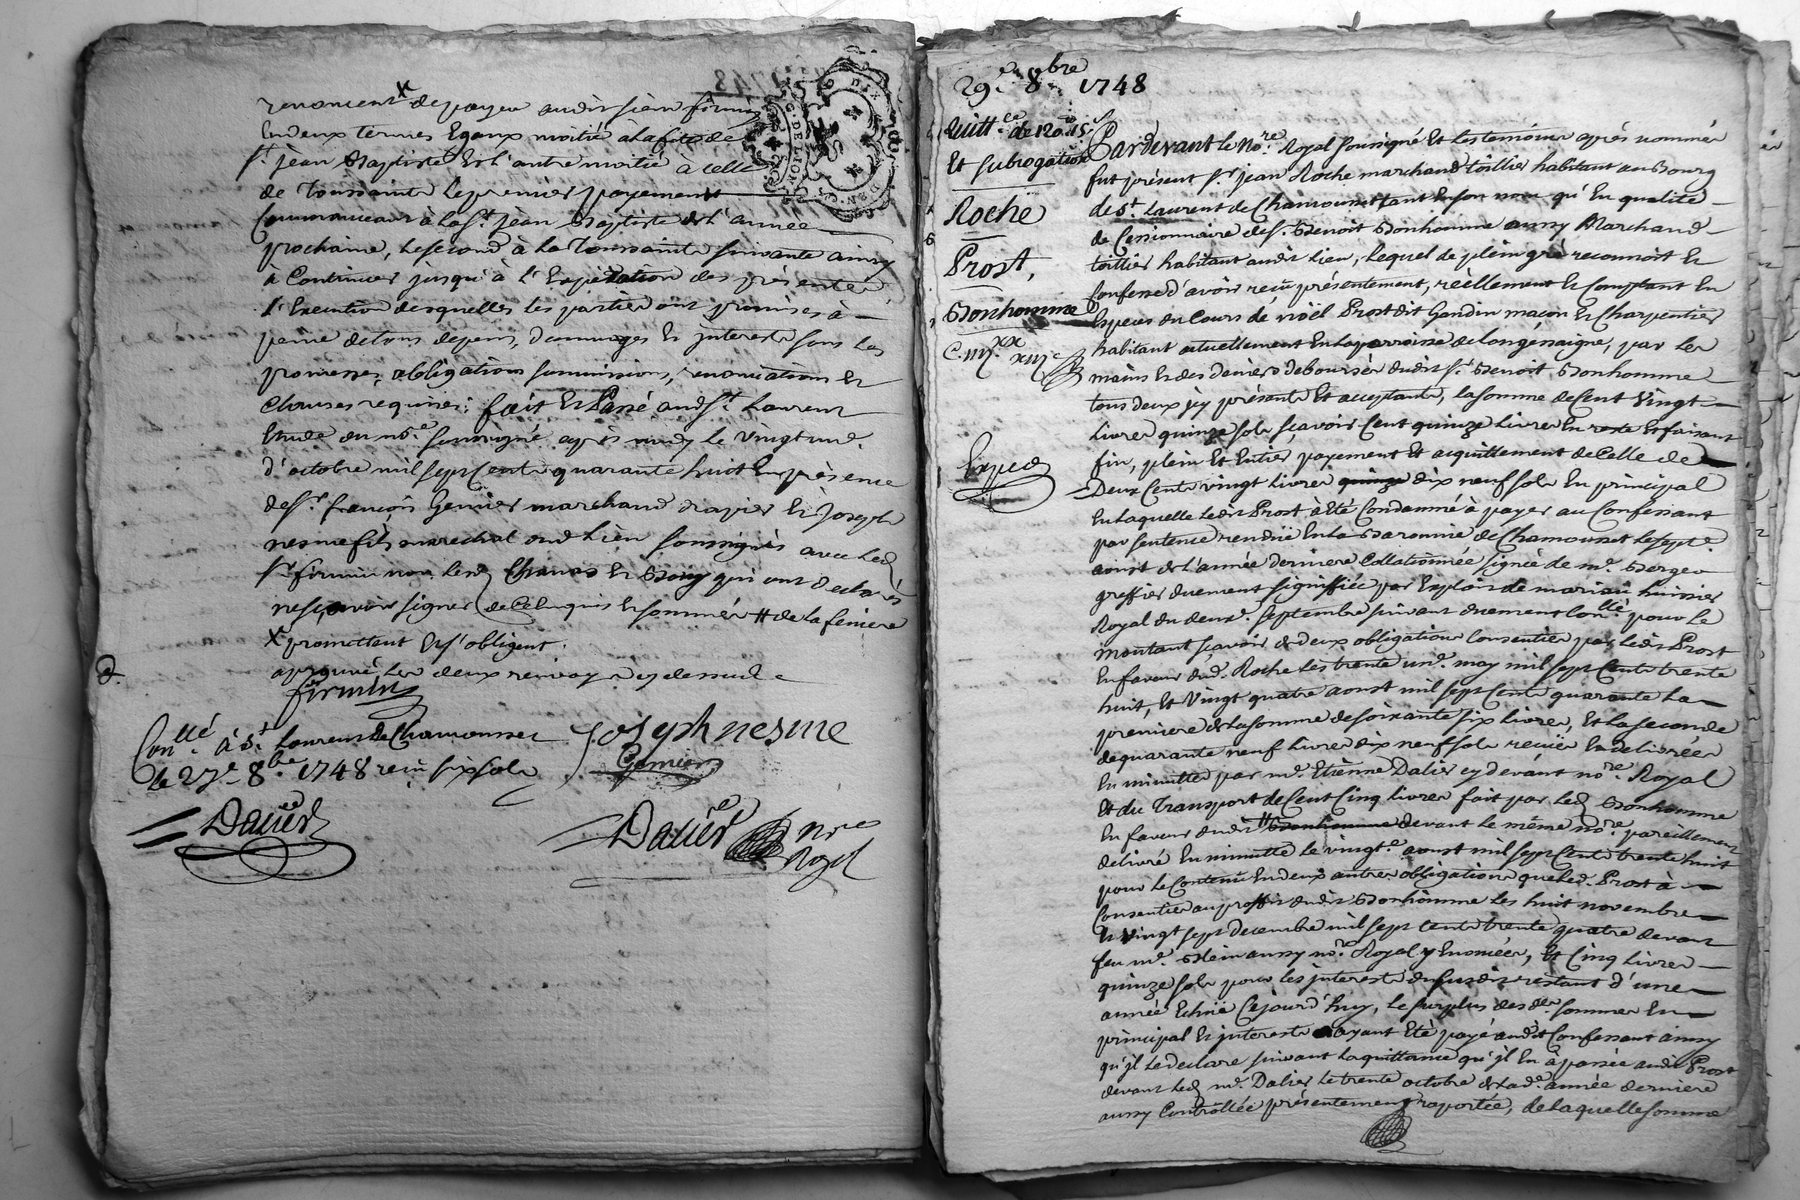 renoncent x de payer audit sieur firmin
En deux termes Egaux moitié à la fête de
st. jean Baptiste Et l'autre moitié à celle
de Toussaints Le premier payement
Commenceant à la st. jean Baptiste de l'année
prochaine, Le second à la Toussaints suivante ainsy
à Continuer jusqu'à l'Expiration des présentes
l'Execution desquelles les parties ont promises à
peine de tous depens, dommages Et interests sous les
promesses, obligations summissions, renonciations Et
Clauses requises; fait Et Passé audit st. Laurent
Etude du nore. soussigné après midy le vingt un.e
d'octobre mil sept Cents quarante huit En présence
de sr. françois Gemier marchand drapier Et joseph
nesme fils marechal dud. Lieu soussignés avec led.
sr. firmin non lesd. Et qui ont declarés
ne sçavoir signer de Ce Enquis Et sommés # de la feniere
x promettent Et s'obligent.
aprouvé Les deux renvoys cy dessus
firmin
Conllé. à st. Laurent de Chamousset
Le 27e. 8bre. 1748 reçu six sols
joseph nesme
Gemier
Dalier
Dalier nore
Royal
29e. 8bre 1748
Quittce. de 120# 15s
Et subrogation
Roche
Prost,
Bonhomme
Exped
Pardevant le Nore. Royal soussigné Et les temoins après nommés
fut présent sr. jean Roche marchand toillier habitant au Bourg
de st. Laurent de Chamousset tant En son nom qu'En qualité
de Cessionnaire de sr. Benoit Bonhomme aussy Marchand
toillier habitant audit Lieu, Lequel de plein gré reconnoit Et
Confesse d'avoir reçu présentement, réellement Et Comptant En
Especes du Cours de nöel Prost dit Gandin maçon Et Charpentier
habitant actuellement En la parroisse de Longessaigne, par les
mains Et des deniers deboursés dudit sr. Benoit Bonhomme
tous deux jcy présents Et acceptants, la somme de Cent Vingt
Livres quinze sols sçavoir Cent quinze Livres En reste Et faisant
fin, plein Et Entier payement Et acquittement de Celle de
Deux Cents vingt Livres quinze dix neuf sols En principal
En Laquelle Ledit Prost à Eté Condamné à payer au Confessant
par sentence rendüe En la Baronnie de Chamousset Le sept.e
aoust de l'année derniere Collationnée signée de me. Berger
greffier duement signiffiée par Exploit de mariau huissier
Royal du deux.e septembre suivant duement Conllé. pour le
montant sçavoir de deux obligations Consenties par Ledit Prost
En faveur dud. Roche Les trente un.e may mil sept Cents trente
huit, Et vingt quatre aoust mil sept Cents quarante La
premiere de La somme de soixante six Livres, Et La seconde
de quarante neuf Livres dix neuf sols reçües Et delivrées
En minutte par me. Etienne Dalier cy devant nore. Royal
Et du Transport de Cent Cinq Livres fait par led. Bonhomme
En faveur dudit # Bonhomme devant le même nore. pareillement
delivré En minutte le vingt.e aoust mil sept Cents trente huit
pour le Contenu En deux autres obligations que led. Prost à
Consenties au proffit dudit Bonhomme Les huit novembre
Et vingt sept decembre mil sept Cents trente quatre devant
feu me. aussy nore. Royal y Enoncées, Et Cinq Livres
quinze sols pour les jnterests du susdit restant d'une
année Echüe Cejourd'huy, Le surplus desd. sommes En
principal Et jnterests ayant Eté payé audit Confessant ainsy
qu'jl Le declare suivant La quittance qu'jl En à passée audit Prost
devant led. me. Dalier Le trente octobre de lade. année derniere
aussy Contrôllée présentement raportée, de Laquelle somme